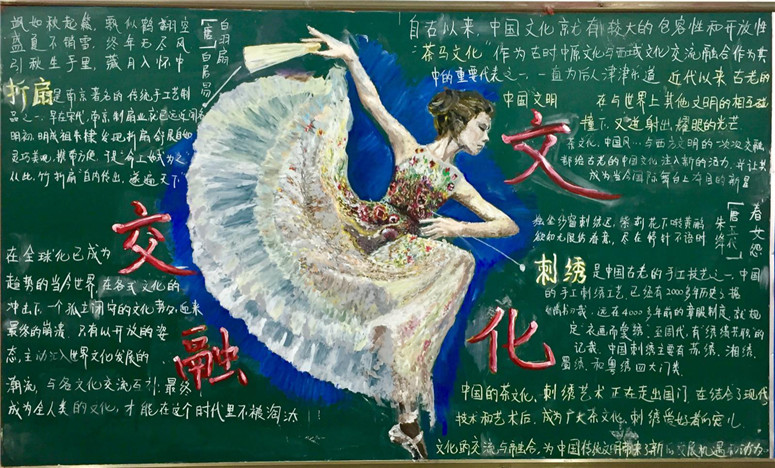 飘似鹤翻空
盛夏不销雪，终年无尽风
引秋生手里，藏月入怀中
白羽扇
[唐]白居易
折扇是南京著名的传统手工艺制
品之一，早在宋代，南京制扇业就已远近闻名
明初，明成祖朱棣
从此，竹折扇"自内传出，遂遍天下"
交
融
在全球化已成为
趋势的当今世界，在各式文化的
冲击下，一个孤立闭守的文化势必迎来
最终的崩溃，只有以开放的姿
态，主动汇入世界文化发展的
潮流，与各文化交流互引，最终
成为全人类的文化，才能在这个时代里不被淘汰！
自古以来，中国文化就有较大的包容性和开放性
"茶马文化"作为古时中原文化与西域文化交流融合作为其
中的重要代表之一，一直为后人津津乐道 近代以来古老的
中国文明 在与世界上其他文明的相互碰
撞下，又迸射出耀眼的光芒
茶文化，中国风…与西方文明的一次次交融
都给古老的中国文化注入新的活力，并让其
成为当今国际舞台上夺目的新星
文
化
春女怨
[唐五代]
朱绛
独坐纱窗刺绣迟，紫荆花下啭黄鹂
欲知无限伤春意，尽在停针不语时
刺绣是中国古老的手工技艺之一，中国
的手工刺绣工艺，已经有2000多年历史了据
《尚书》载，远在4000多年前的章服制度，就规
定"衣画而裳绣"。至周代，有"绣缋共职"的
记载。中国刺绣主要有苏绣、湘绣、
蜀绣、和粤绣四大门类
中国的茶文化，刺绣艺术正在走出国门，在结合了现代
技术和艺术后，成为广大茶文化，刺绣爱好者的宠儿
文化的交流与融合，为中国传统文明带来了新的发展机遇和动力